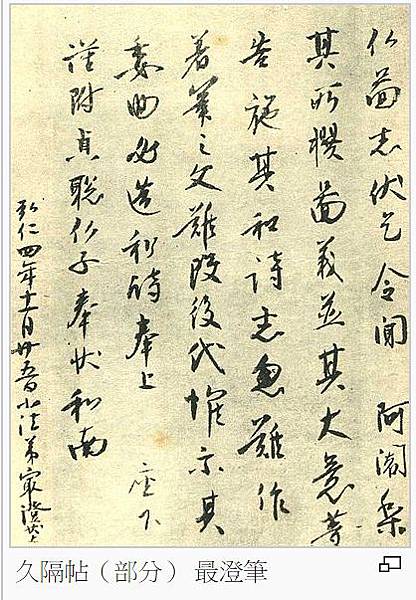 仏図者伏乞令聞 阿闍梨
其所撰図義並其大意等
告施其和詩者忽難作
著筆之文難改後代惟示其
委曲必造和詩奉上 座下
謹附貞聡仏子奉状和南
弘仁四年十一月廿五日小法弟最澄状上
久隔帖（部分） 最澄筆